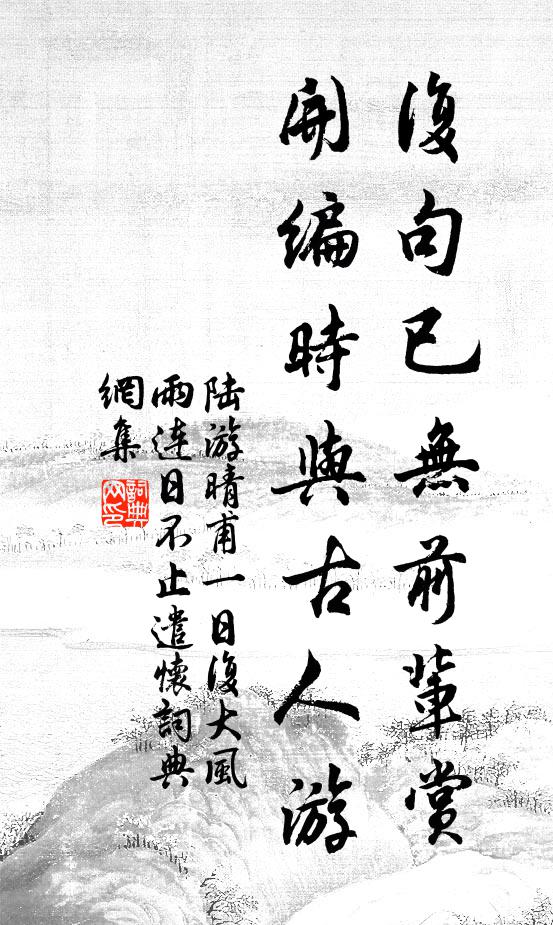 復句已無前輩賞
開編時與古人游
陸游晴甫一日復大風
雨連日不止遣懷詞典
網集
詞典網印